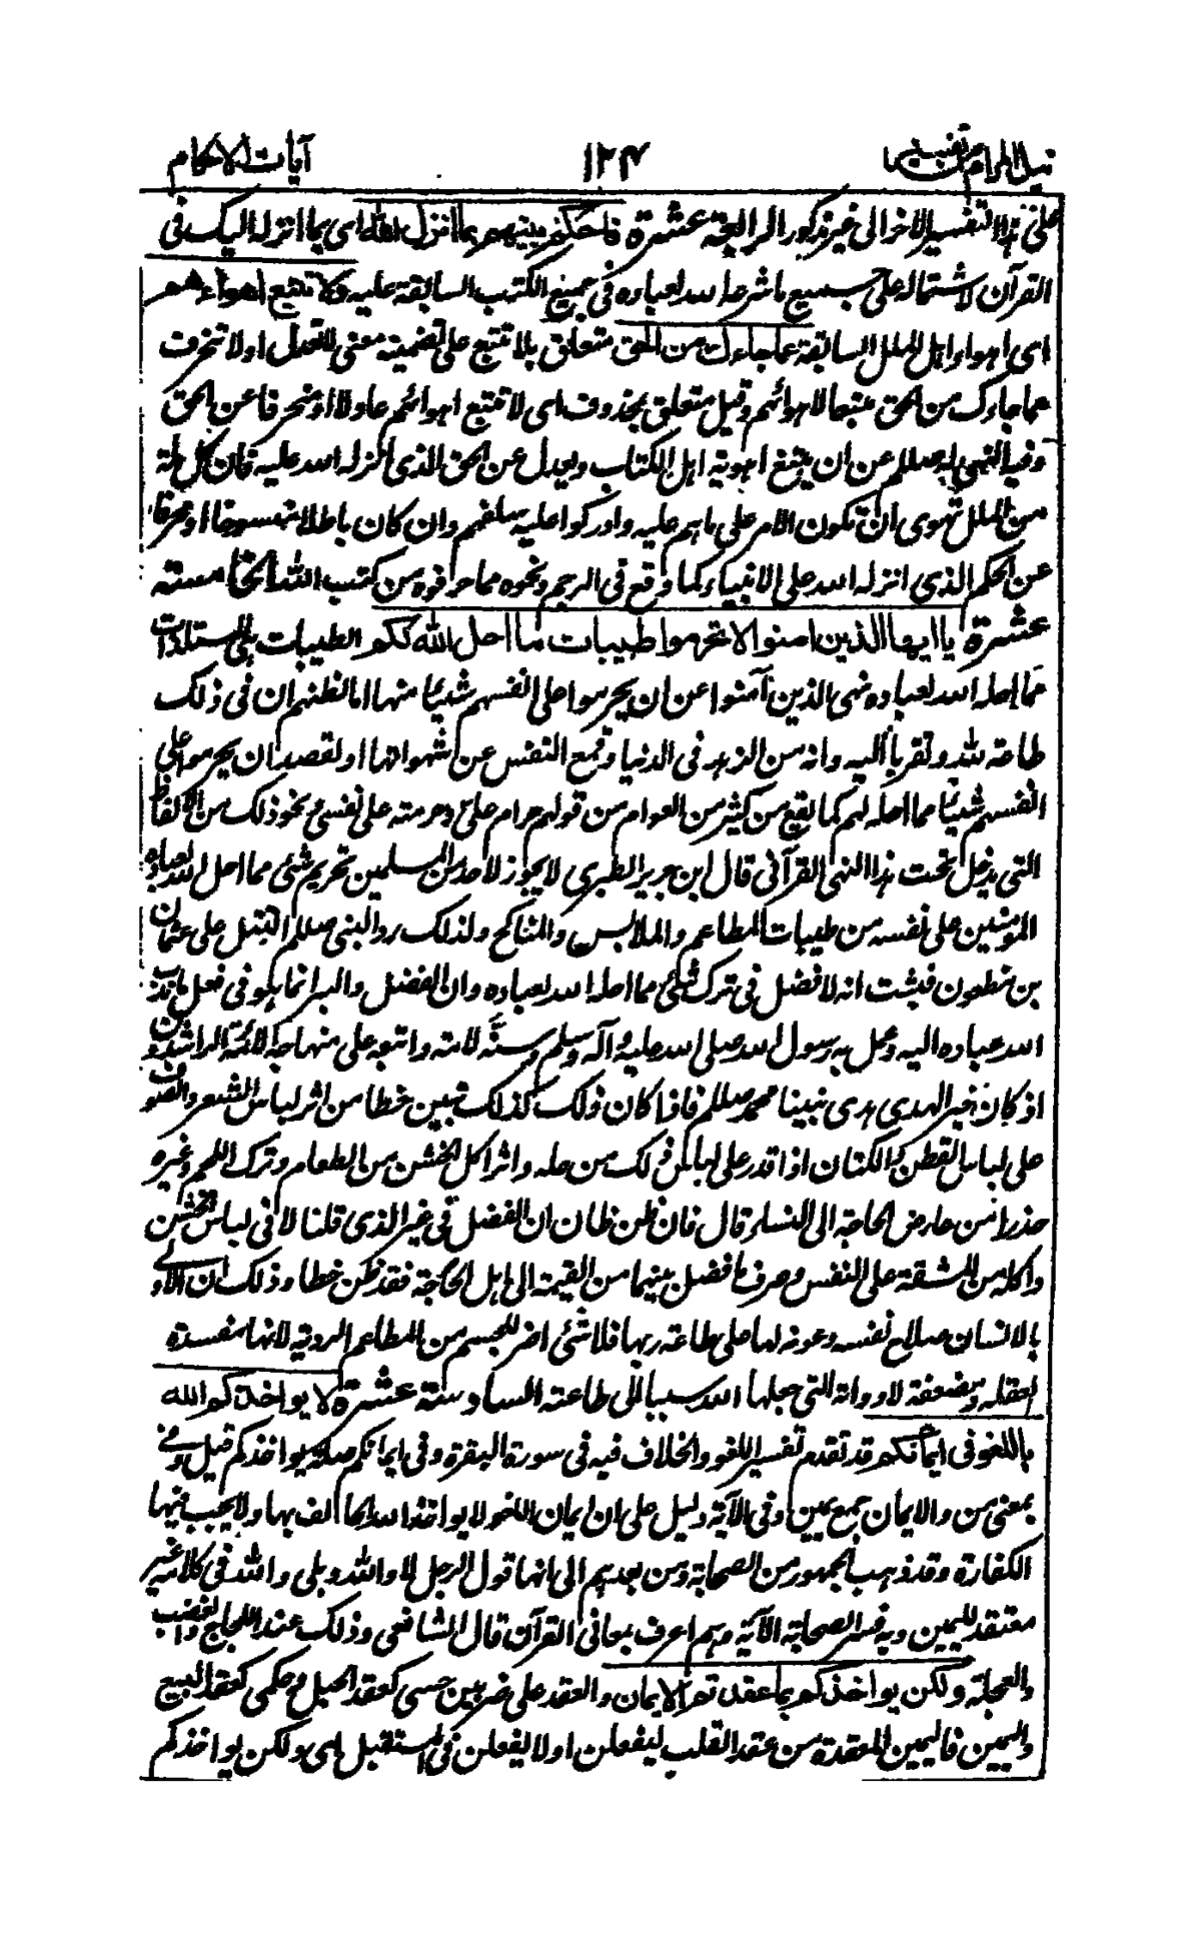 نيل المرام من تفسير ١٢٤ آيات الاحكام
على هذا التفسير الاخر الى غير مذكور الرابعة عشرة فاحكم بينهم بما انزل الله اى بما انزله اليك فى
القرآن لاشتماله على جميع ما شرعه الله لعباده فى جميع الكتب السابقة عليه ولا تتبع اهواءهم
اى اهواء اهل الملل السابقة عما جاءك من الحق متعلق بلا تتبع على تضمينه معنى لا تعدل او لا تنحرف
عما جاءك من الحق متبعا لاهوائهم وقيل متعلق بمحذوف اى لا تتبع اهوائهم عادلا او منحرفا عن الحق
وفيه النهى له صلعم عن ان يتبع اهوية اهل الكتاب ويعدل عن الحق الذى انزله الله عليه فان كل ملة
من الملل تهوى ان تكون الامر على ما هم عليه وادركوا عليه سلفهم وان كان باطلا منسوخا او محرفا
عن الحكم الذى انزله الله على الانبياء كما وقع فى الرجم ونحوه مما حرفوه من كتب الله الخامسة
عشرة يا ايها الذين امنوا لا تحرموا طيبات ما احل الله لكم الطيبات هى المستلذات
مما احله الله لعباده نهى الذين آمنوا عن ان يحرموا على انفسهم شيئا منها اما لظنهم ان فى ذلك
طاعة لله وتقربا اليه وانه من الزهد فى الدنيا وقمع النفس عن شهواتها او لقصد ان يحرموا على
انفسهم شيئا مما احله لهم كما يقع من كثير من العوام من قولهم حرام على وحرمته على نفسى ونحو ذلك من الالفاظ
التى يدخل تحت هذا النهى القرآنى قال ابن جرير الطبرى لا يجوز لاحد من المسلمين تحريم شئ مما احل الله لعباده
المؤمنين على نفسه من طيبات المطاعم والملابس والمناكح ولذلك رد النبى صلعم التبتل على عثمان
بن مظعون فثبت انه لا فضل فى ترك شئ مما احله الله لعباده وان الفضل والبر انما هو فى فعل ما ندب
الله عباده اليه وعمل به رسول الله صلى الله عليه وآله وسلم وسنّه لامته واتبعه على منهاجه الائمة الراشدون
اذ كان خير الهدى هدى نبينا محمد صلعم فاذا كان ذلك كذلك تبين خطا من اثر لباس الشعر والصوف
على لباس القطن والكتان اذا قدر على لباس ذلك من حله واثر اكل الخشن من الطعام وترك اللحم وغيره
حذرا من عارض الحاجة الى النساء قال فان ظن ظان ان الفضل فى غير الذى قلنا لما فى لباس الخشن
واكله من المشقة على النفس وصرف ما فضل بينهما من القيمة الى اهل الحاجة فقد ظن خطا وذلك ان الاولى
بالانسان صلاح نفسه وعونه لها على طاعة ربها فلا شئ اضر للجسم من المطاعم الردية لانها مفسدة
لعقله ومضعفة لادواته التى جعلها الله سببا الى طاعته السادسة عشرة لا يواخذكم الله
باللغو فى ايمانكم قد تقدم تفسير اللغو والخلاف فيه فى سورة البقرة وفى ايمانكم صلة يواخذكم قيل وفى
بمعنى من والايمان جمع يمين وفى الآية دليل على ان ايمان اللغو لا يواخذ الله الحالف بها ولا يجب فيها
الكفارة وقد ذهب الجمهور من الصحابة ومن بعدهم الى انها قول الرجل لا والله وبلى والله فى كلامه غير
معتقد لليمين وبه فسر الصحابة الآية وهم اعرف بمعانى القرآن قال الشافعى وذلك عند اللجاج والغضب
والعجلة ولكن يواخذكم بما عقدتم الايمان والعقد على ضربين حسى كعقد الحبل وحكمى كعقد البيع
واليمين فاليمين المعقدة من عقد القلب ليفعلن او لا يفعلن فى المستقبل اى ولكن يواخذكم